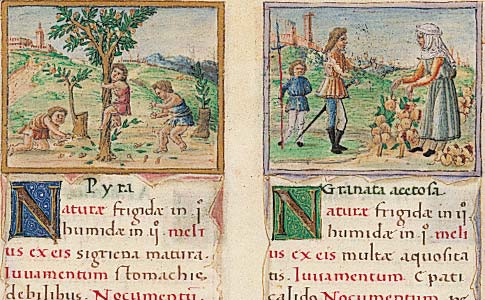 Pyra
Naturæ frigidæ in .i.
humidæ in .ij. meli
us ex eis sigriena matura.
Iuuamentum stomachis
debilibus. Nocumentu
Granata acetosa
Naturæ frigidæ in ij
humidæ in .i. meli
us ex eis multæ aquosita
tis. Iuuamentum. Epati
calido Nocumentum. pe